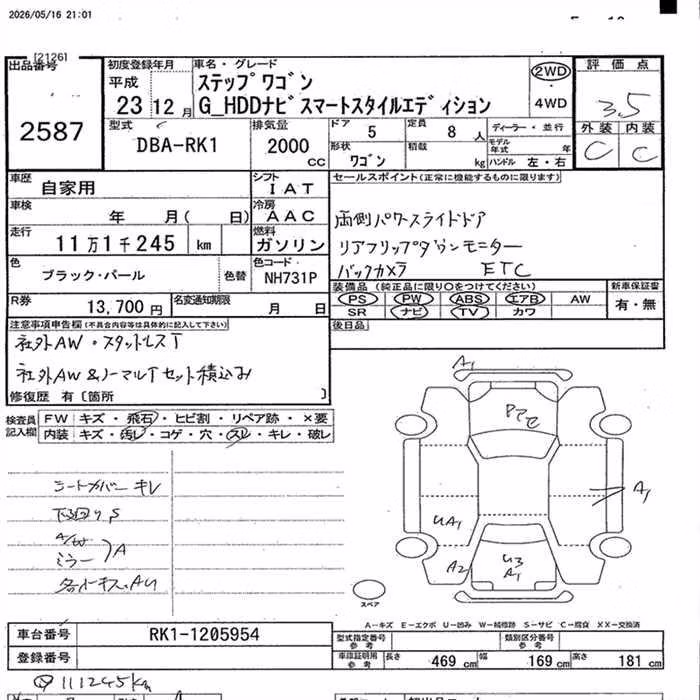 2026/05/16 21:01
[2126]
出品番号
2587
初度登録年月
平成
23 12 月
車名・グレード
ステップワゴン
G_HDDナビスマートスタイルエディション
2WD
・
4WD
評価点
3.5
外装 内装
C C
型式
DBA-RK1
排気量
2000 CC
ドア 5
定員 8 人
ディーラー・並行
形状 ワゴン
積載 kg
モデル年式 年
ハンドル 左・右
車歴 自家用
シフト I A T
車検 年 月( 日)
冷房 A A C
走行 11万1千245 km
燃料 ガソリン
色 ブラック・パール
色替
色コード NH731P
R券 13,700 円
名変通知期限 月 日
セールスポイント(正常に機能するものに限ります)
両側パワースライドドア
リアフリップダウンモニター
バックカメラ ETC
装備品 (純正品に限り○をつけてください)
PS PW ABS エアB AW
SR ナビ TV カワ
新車保証書
有・無
後日品
注意事項申告欄(不具合内容等は具体的に記入して下さい)
社外AW・スタットレスT
社外AW&ノーマルTセット積込み
修復歴 有〔箇所 〕
検査員記入欄
FW キズ・飛石・ヒビ割・リペア跡・×要
内装 キズ・汚レ・コゲ・穴・スレ・キレ・破レ
シートカバー キレ
下回り S
A/W
ミラー
A
A1
A1
UA1
A2
U3
A1
スペア
A-キズ E-エクボ U-凹み W-補修跡 S-サビ C-腐食 XX-交換済
車台番号 RK1-1205954
登録番号
型式指定番号 参考
類別区分番号 参考
車庫証明用 参考
長さ 469 cm
幅 169 cm
高さ 181 cm
111245km